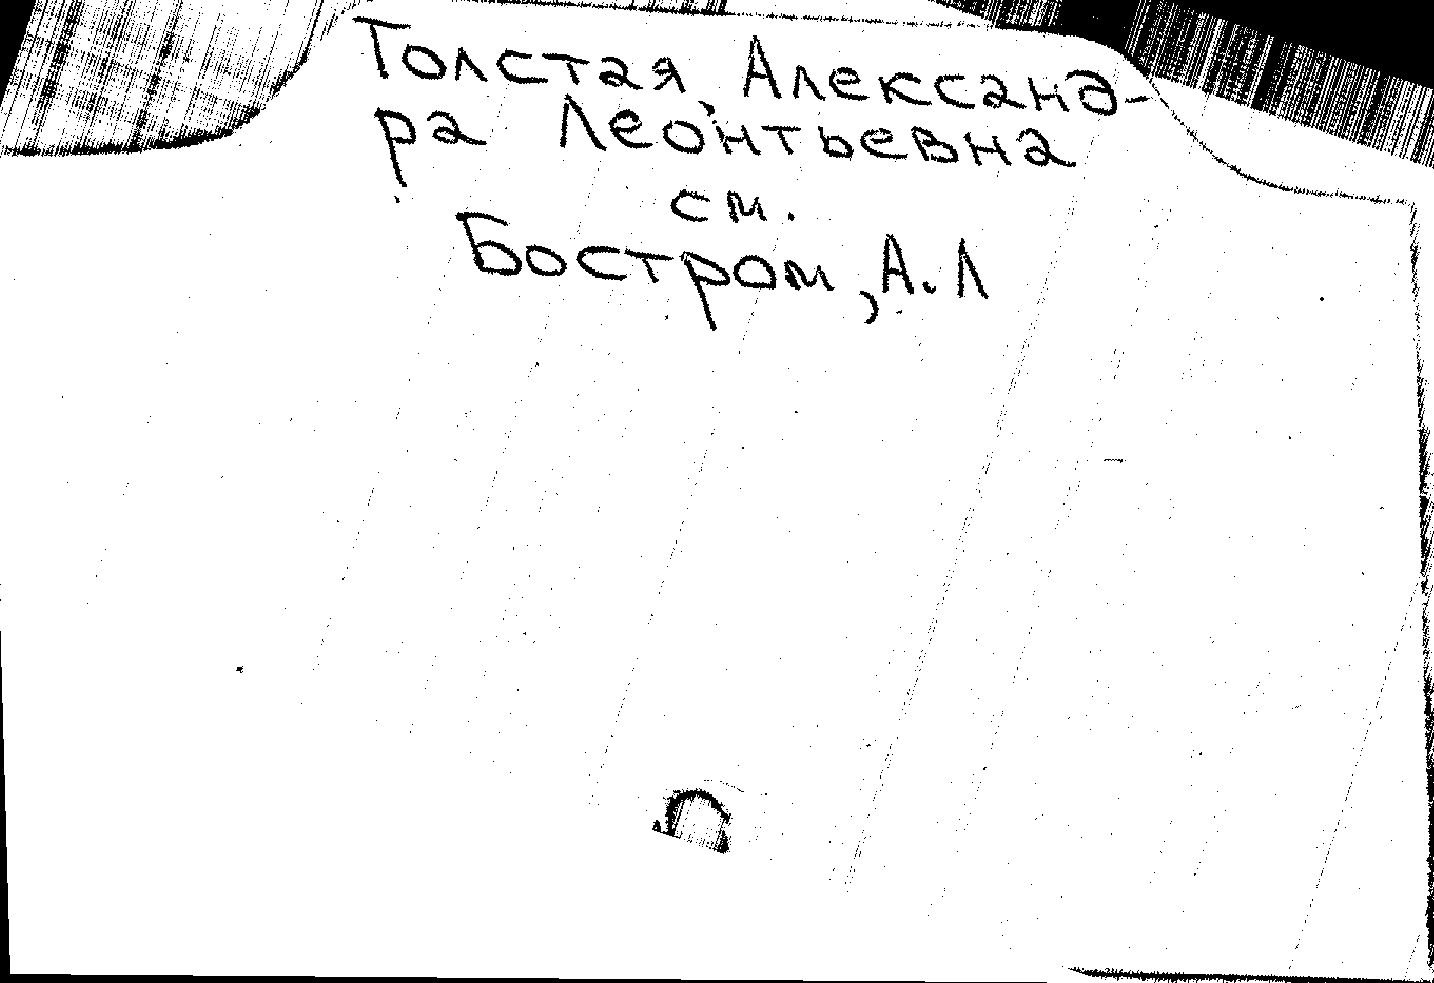 Толстая, Александ-
ра Леонтьевна
см.
Бостром, А. Л